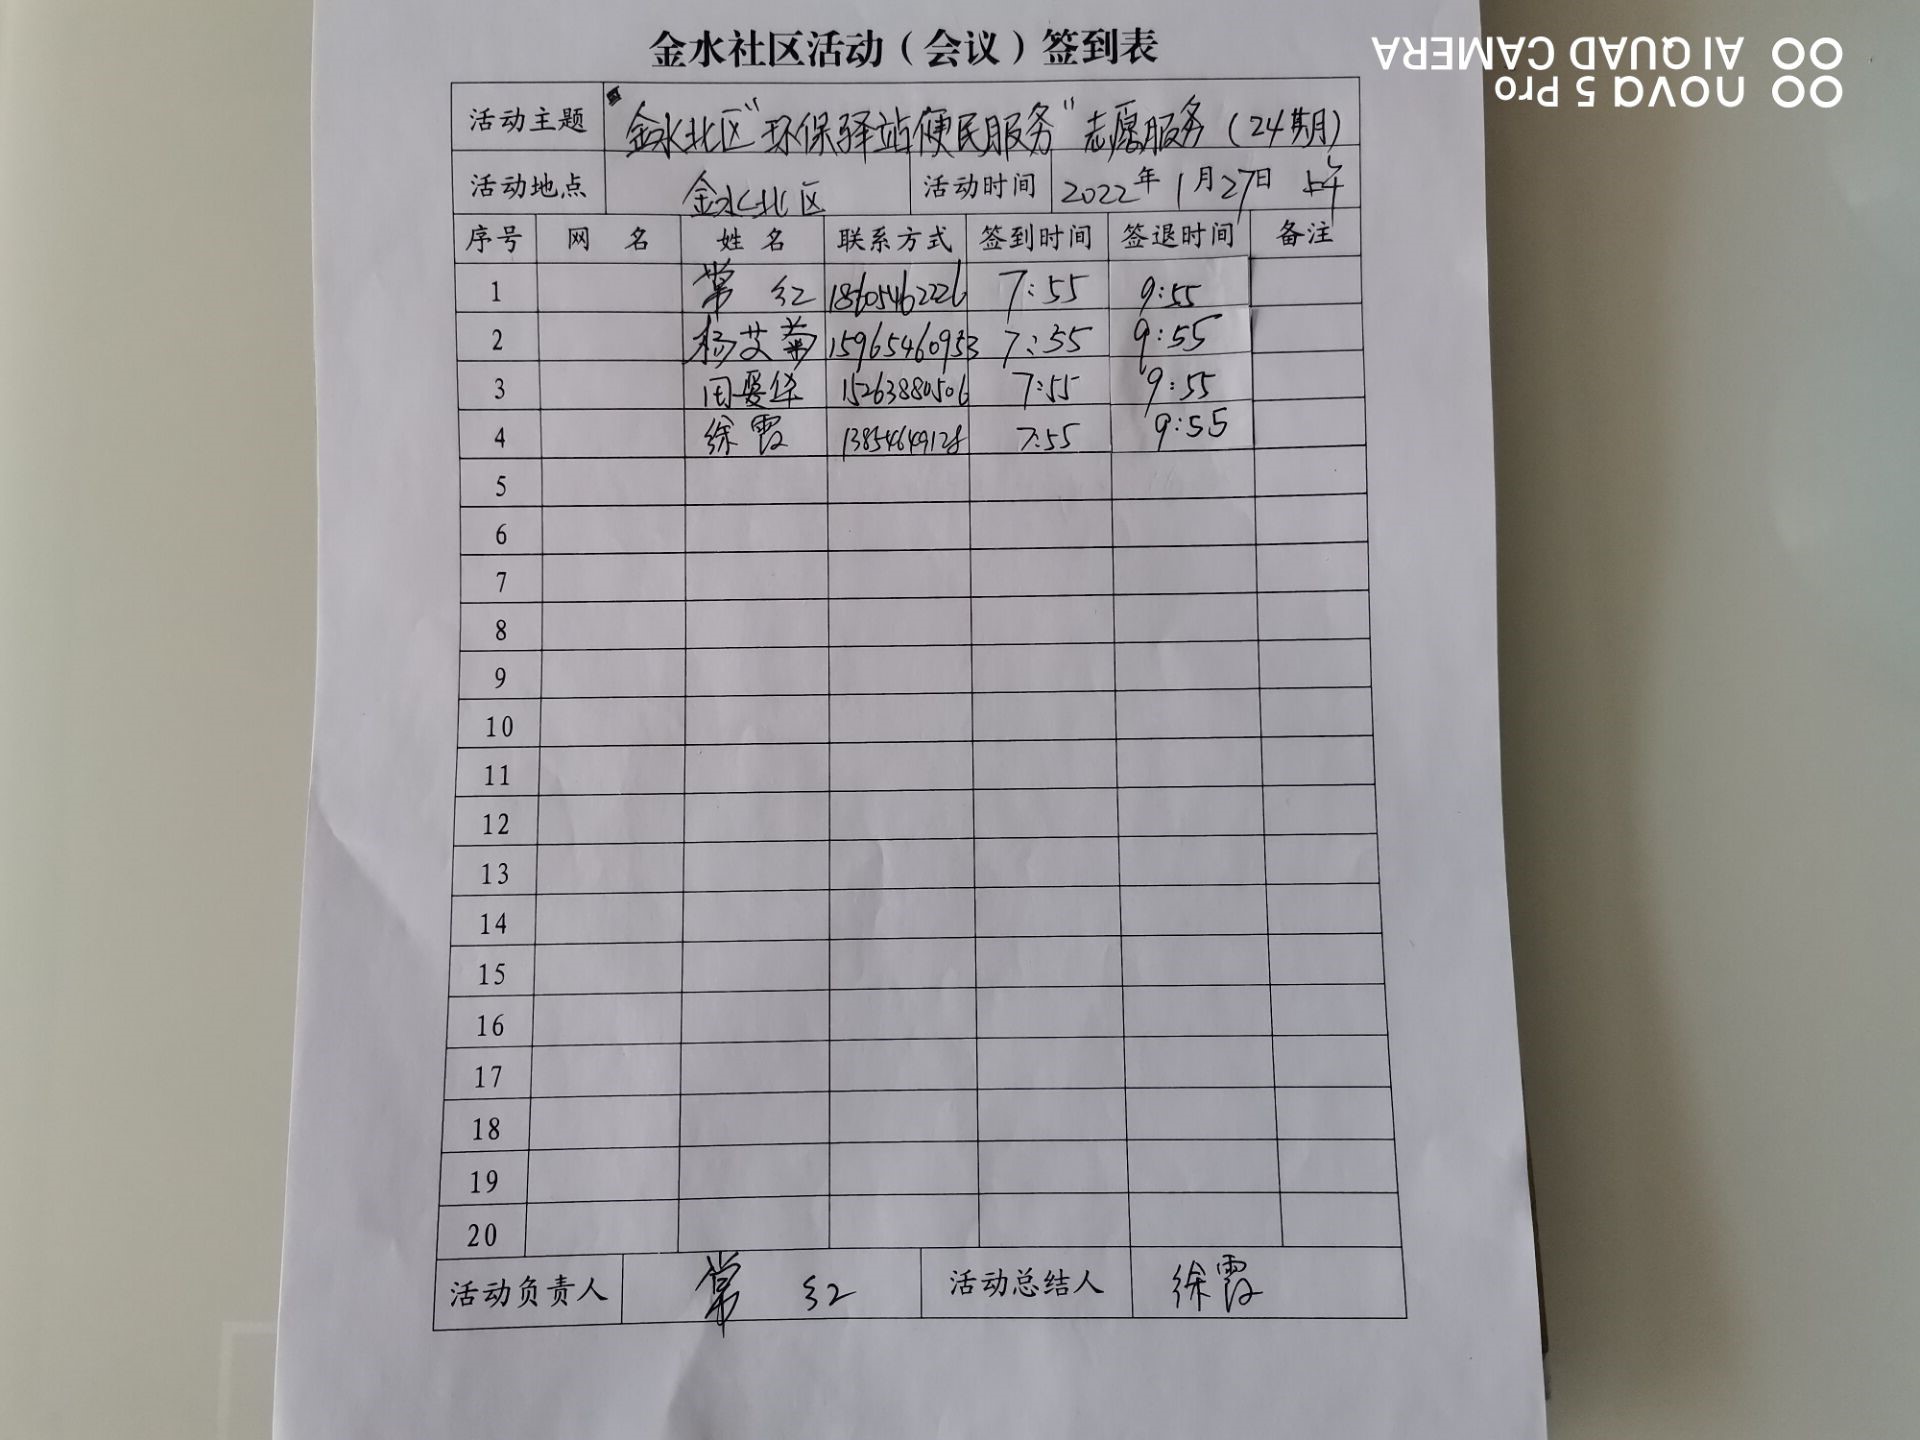 金水社区活动（会议）签到表
活动主题 金水北区"环保驿站便民服务"志愿服务（24期）
活动地点 金水北区 活动时间 2022年1月27日 上午
序号 网 名 姓 名 联系方式 签到时间 签退时间 备注
1 常 红 18605462226 7:55 9:55
2 杨艾菊 15965460953 7:55 9:55
3 田爱华 15263880506 7:55 9:55
4 徐霞 13854649128 7:55 9:55
5
6
7
8
9
10
11
12
13
14
15
16
17
18
19
20
活动负责人 常 红 活动总结人 徐霞
nova 5 Pro
AI QUAD CAMERA